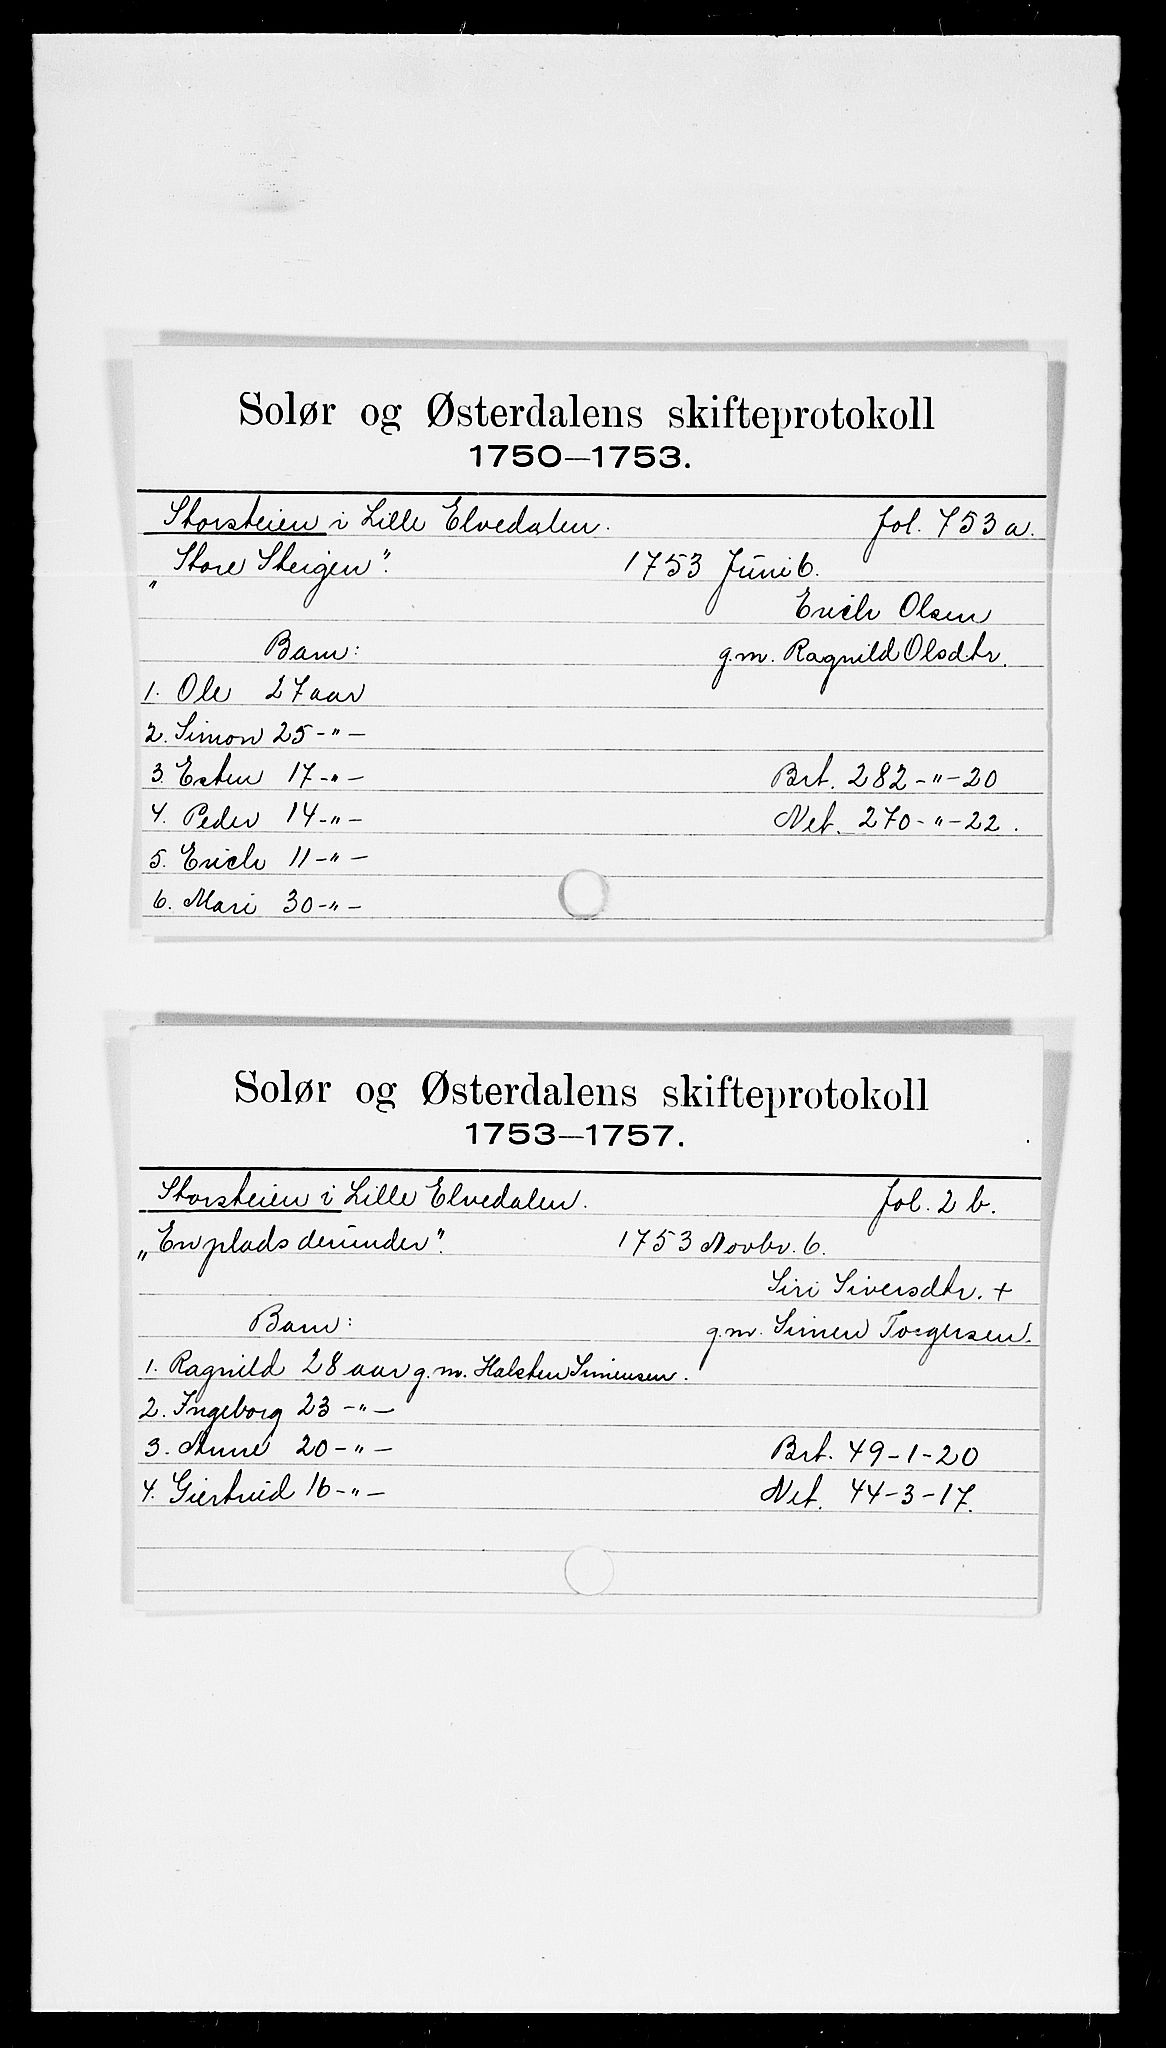 Solør og Østerdalens skifteprotokoll
1750—1753.
Storsteien i Lille Elvedalen. fol. 753 a.
„Store Steigen". 1753 Juni 6.
Erich Olsen
Barn: g.m. Ragnild Olsdtr.
1. Ole 27 aar
2. Simon 25 -"-
3. Esten 17 -"- Brt. 282-"-20
4. Peder 14 -"- Net. 270-"-22.
5. Erich 11 -"-
6. Mari 30 -"-
Solør og Østerdalens skifteprotokoll
1753—1757.
Storsteien i Lille Elvedalen. fol. 2 b.
„En plads derunder". 1753 Novbr. 6.
Siri Siversdtr. +
Barn: g.m. Simen Torgersen.
1. Ragnild 28 aar g.m. Halsten Simensen.
2. Ingeborg 23 -"-
3. Anne 20 -"- Brt. 49-1-20
4. Giertruid 16 -"- Net. 44-3-17.